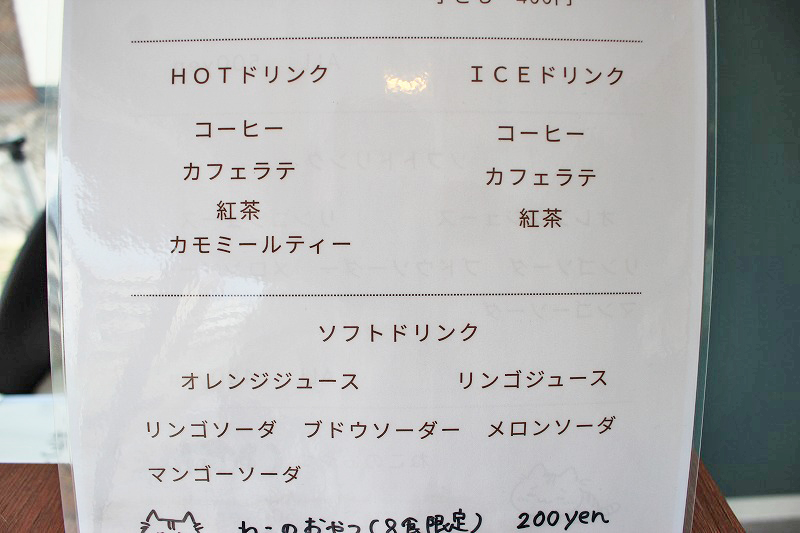 子ども 400円
HOTドリンク ICEドリンク
コーヒー コーヒー
カフェラテ カフェラテ
紅茶 紅茶
カモミールティー
ソフトドリンク
オレンジジュース リンゴジュース
リンゴソーダ ブドウソーダー メロンソーダ
マンゴーソーダ
ねこのおやつ(8食限定) 200yen